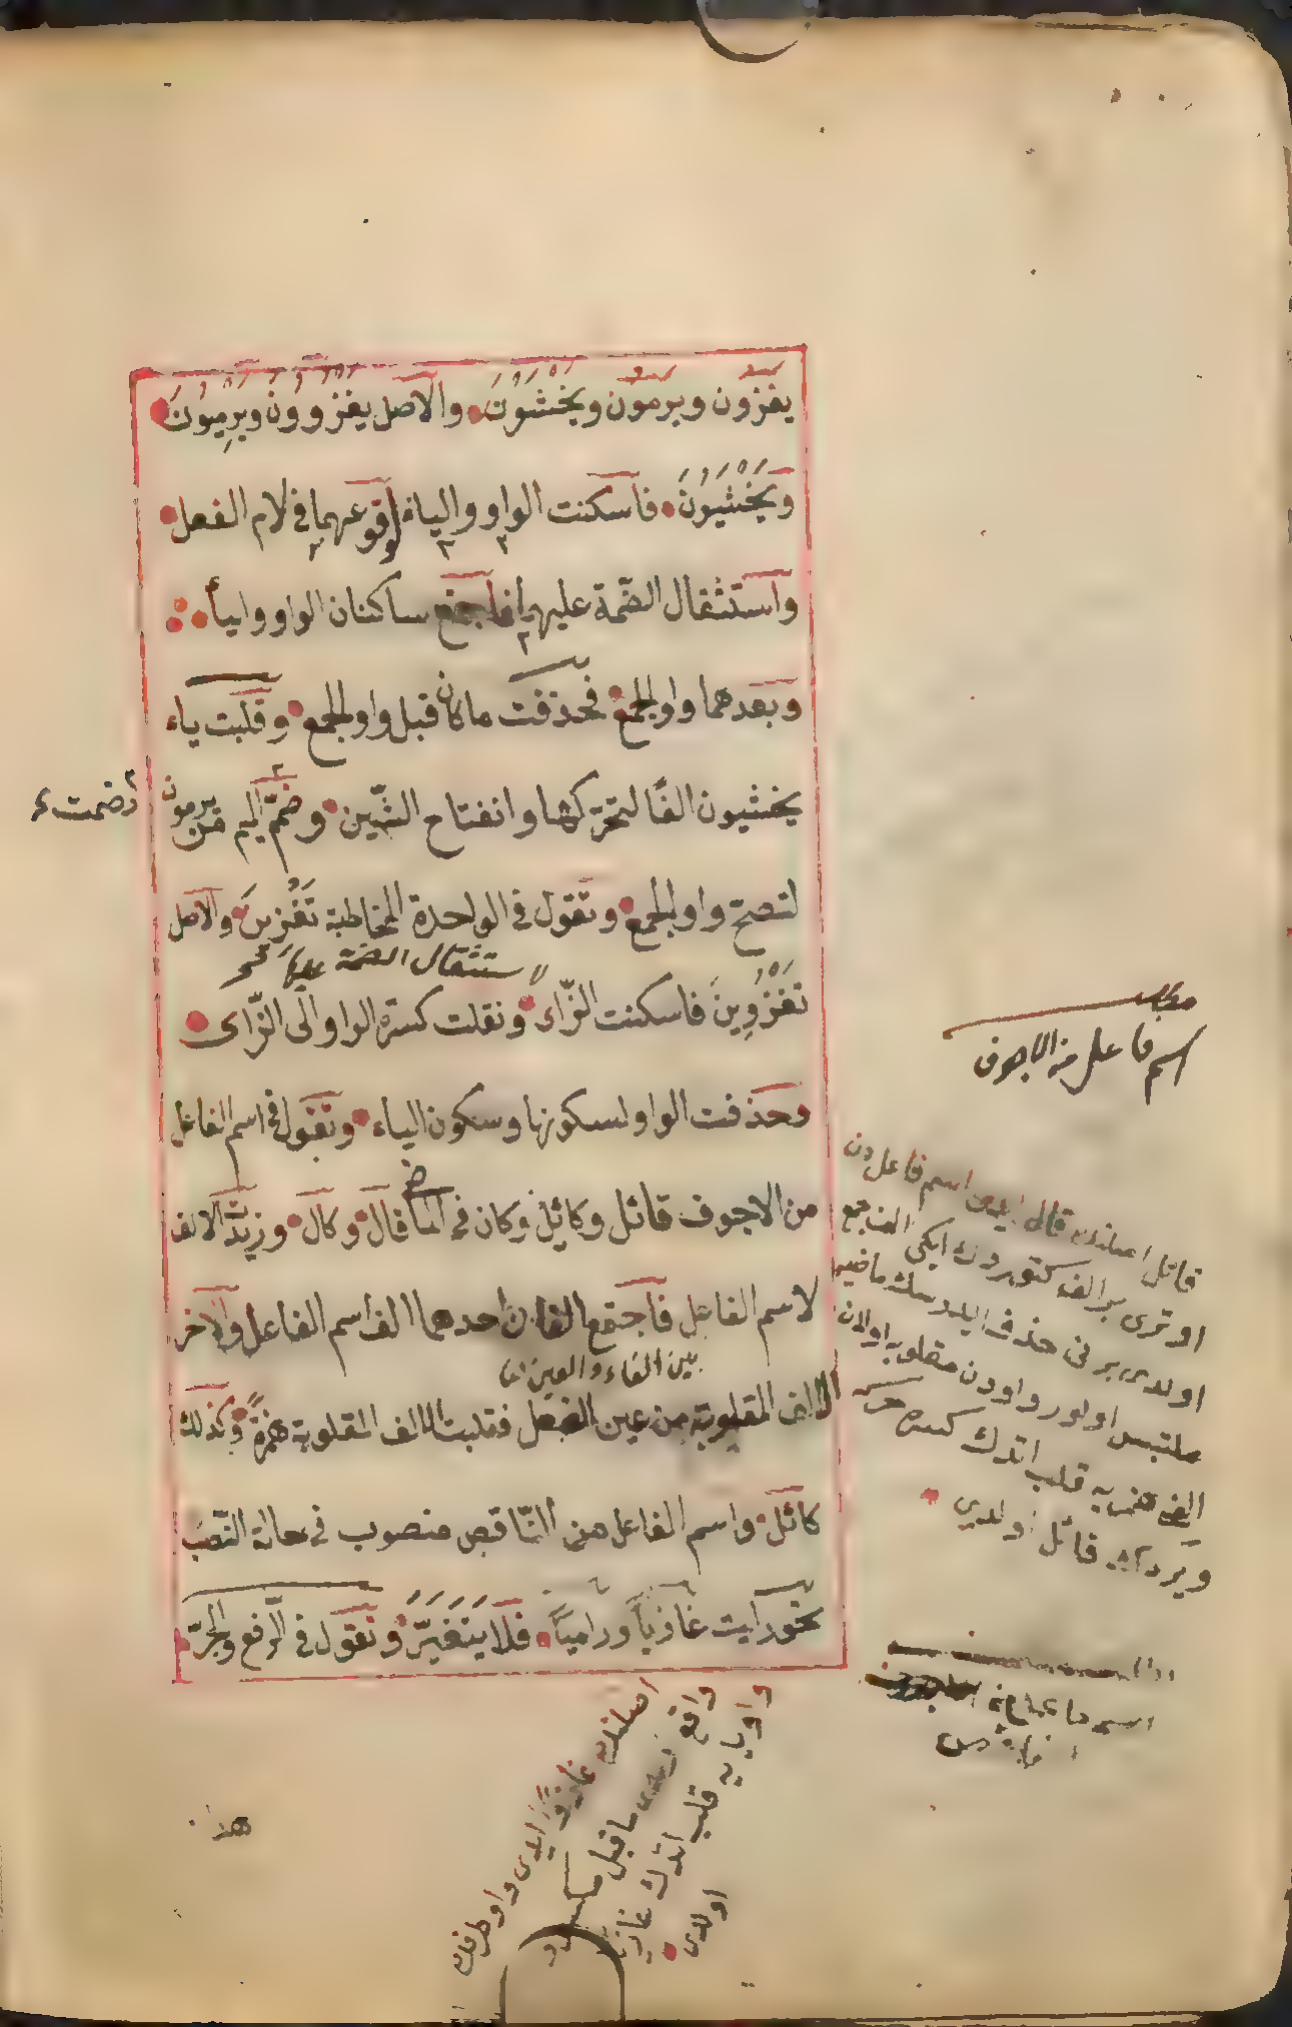 يغزون ويرمون ويخشون والاصل يغزوون ويرميون
ويخشيون فاسكنت الواو والياء لوقوعهما في لام الفعل
واستثقال الضمة عليهما فاجتمع ساكنان الواو والياء
وبعدهما واو الجمع فحذفت ماكان قبل واو الجمع وقلبت ياء
يخشيون الفا لتحركها وانفتاح الشين وضم الميم من يرمون
وضمت
لتصح واو الجمع وتقول في الواحدة المخاطبة تغزين والاصل
لاستثقال الضمة عليها
تغزوين فاسكنت الزاء ونقلت كسرة الواو الى الزاى
وحذفت الواو لسكونها وسكون الياء وتقول في اسم الفاعل
من الاجوف قائل وكائل وكان في الماضى قال وكال وزيدت الالف
لاسم الفاعل فاجتمع الفان احدهما الف اسم الفاعل والآخر
بين الفاء والعين
الالف المقلوبة من عين الفعل فقلبت الالف المقلوبة همزة وكذلك
كائل واسم الفاعل من الناقص منصوب في حالة النصب
نحو رايت غازيا وراميا فلا يتغير وتقول في الرفع والجر
مطلب
اسم فاعل من الاجوف
قائل اصلنده قال ايدى اسم فاعل دن
اوترى بر الف كتوردك ايكى الف جمع
اولدى برنى حذف ايلدرسك ماضيه
ملتبس اولور واودن مقلوب اولان
الفى همزه يه قلب اتدك كسره حركه
ويردك قائل اولدى
اصلنده غازوا ايدى واو طرفده
واقع اولدى ما قبلى مكسور
واو يايه قلب اتدك غازيا
اولدى
هذا